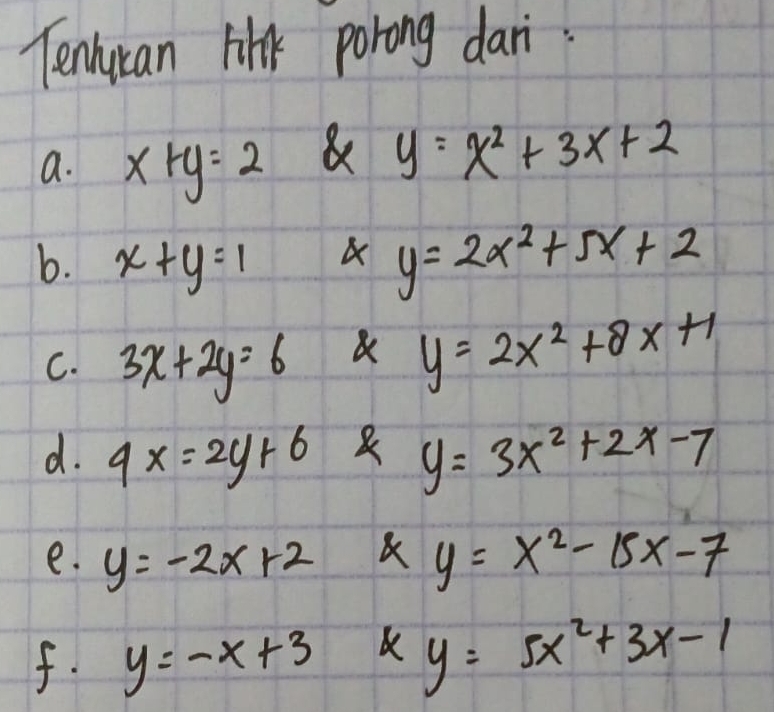 Tentukan titik potong dari :
a. x + y = 2 & y = x² + 3x + 2
b. x + y = 1 & y = 2x² + 5x + 2
c. 3x + 2y = 6 & y = 2x² + 8x + 1
d. 4x = 2y + 6 & y = 3x² + 2x - 7
e. y = -2x + 2 & y = x² - 15x - 7
f. y = -x + 3 & y = 5x² + 3x - 1